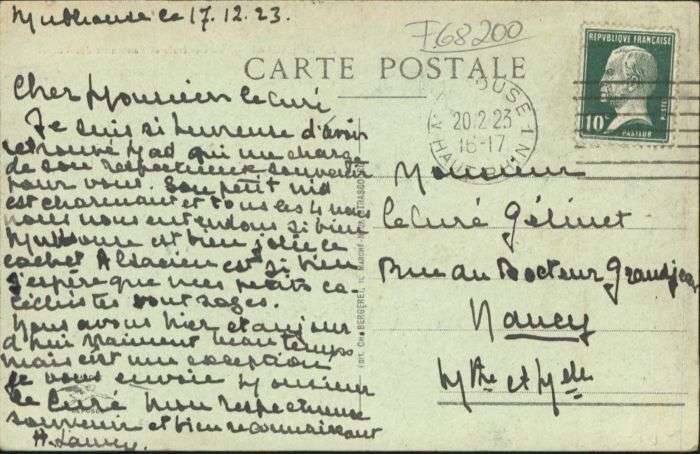 Mulhouse le 17.12.23.
F68200
CARTE POSTALE
RÉPUBLIQUE FRANÇAISE
POSTES
10c
PASTEUR
MULHOUSE
20.2.23
16-17
HAUT-RHIN
Cher Monsieur le Curé
Je suis si heureuse d'avoir
retrouvé Mad qui me charge
de son respectueux souvenir
pour vous. Son petit nid
est charmant et tous les 4 nous
nous nous entendons si bien
Mulhouse est bien jolie ce
cachet Alsacien est si bien
J'espère que mes petits ca-
téchistes sont sages.
Nous avons hier et aujour
d'hui vraiment beau temps
mais c'est une exception
Je vous envoie Monsieur
le Curé mon respectueux
souvenir et bien reconnaissant
Monsieur
le Curé Gélinet
Rue du Docteur Grandjean
Nancy
Mthe et Mlle
Edit. Chs BERGERET